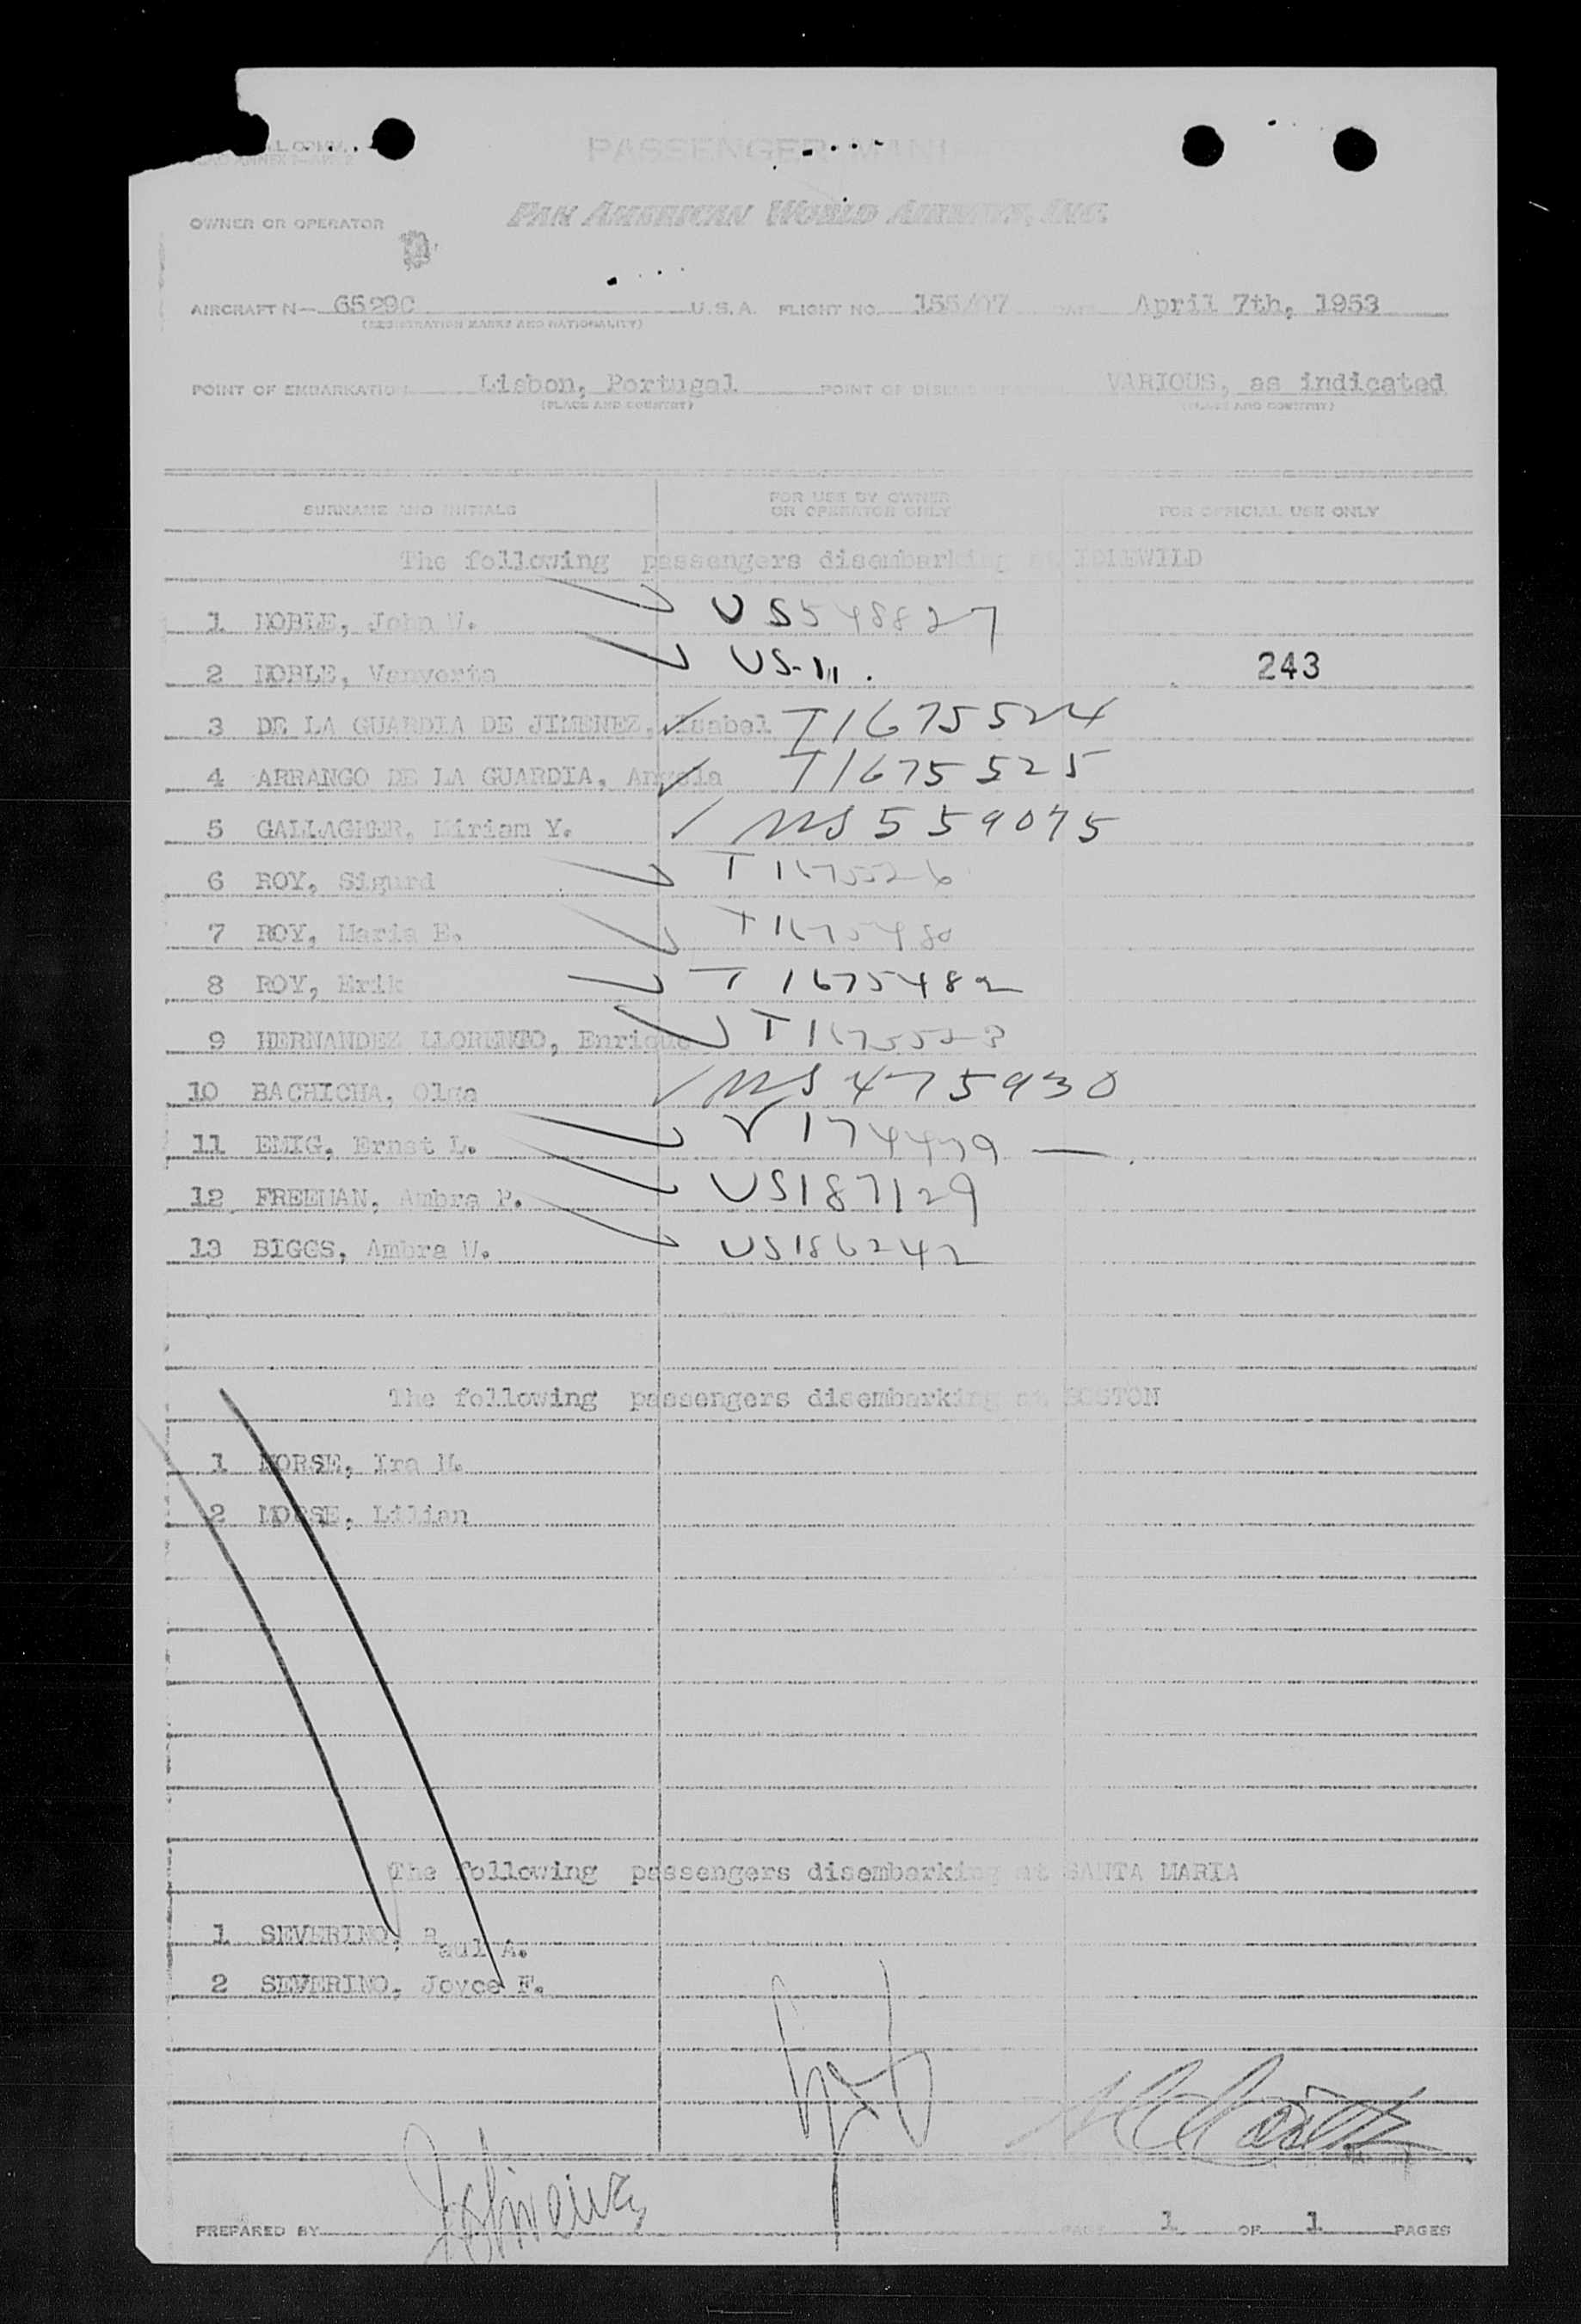 PASSENGER MANI
OWNER OR OPERATOR
PAN AMERICAN WORLD AIRWAYS, INC.
AIRCRAFT N— 6529C U.S.A. FLIGHT NO. 155/07 DATE April 7th, 1953
(REGISTRATION MARKS AND NATIONALITY)
POINT OF EMBARKATION Lisbon, Portugal POINT OF VARIOUS, as indicated
(PLACE AND COUNTRY) (PLACE AND COUNTRY)
SURNAME AND INITIALS FOR USE BY OWNER OR OPERATOR ONLY FOR OFFICIAL USE ONLY
The following passengers disembarking at IDLEWILD
1 NOBLE, John W. US548827
2 NOBLE, Vanvorte US- 243
3 DE LA GUARDIA DE JIMENEZ, Isabel T1675524
4 ARRANGO DE LA GUARDIA, T1675525
5 GALLAGHER, Miriam Y. US559075
6 ROY, Sigurd T1675526
7 ROY, Maria E. T1675480
8 ROY, Erik T1675482
9 HERNANDEZ LLORENTO, Enrique T1675523
10 BACHICHA, Olga US475930
11 EMIG, Ernst L. V174479 —
12 FREEMAN, Ambra P. US187129
13 BIGGS, Ambra W. US186242
The following passengers disembarking at BOSTON
1 MORSE, Ira H.
2 MORSE, Lilian
The following passengers disembarking at SANTA MARIA
1 SEVERINO, Paul A.
2 SEVERINO, Joyce F.
PREPARED BY PAGE 1 OF 1 PAGES